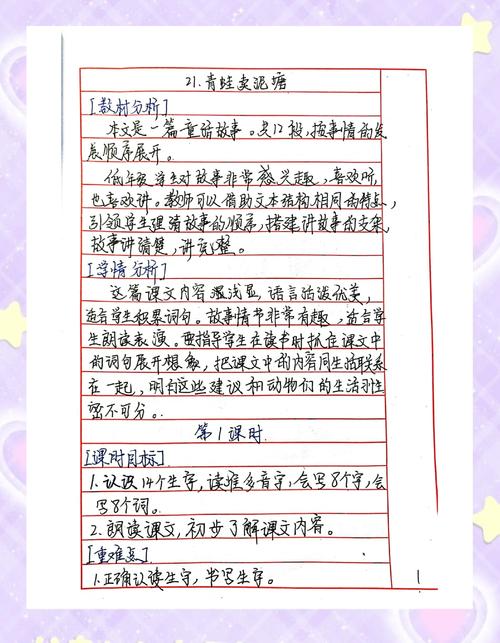 21.青蛙卖泥塘
[教材分析]
本文是一篇童话故事。共12段,按事情的发
展顺序展开。
低年级学生对故事非常感兴趣,喜欢听,
也喜欢讲。教师可以借助文本结构相同的特点,
引领学生理清故事的顺序,搭建讲故事的支架,
故事讲清楚,讲完整。
[学情分析]
这篇课文内容浅显,语言活泼优美,
适合学生积累词句。故事情节非常有趣,适合学
生朗读表演。要指导学生在读书时抓住课文中
的词句展开想象,把课文中的内容同生活联系
在一起,明白这些建议和动物们的生活习性
密不可分。
第1课时
[课时目标]
1.认识14个生字,读准多音字,会写8个字,会
写8个词。
2.朗读课文,初步了解课文内容。
[重难点]
1.正确认读生字,书写生字。
1